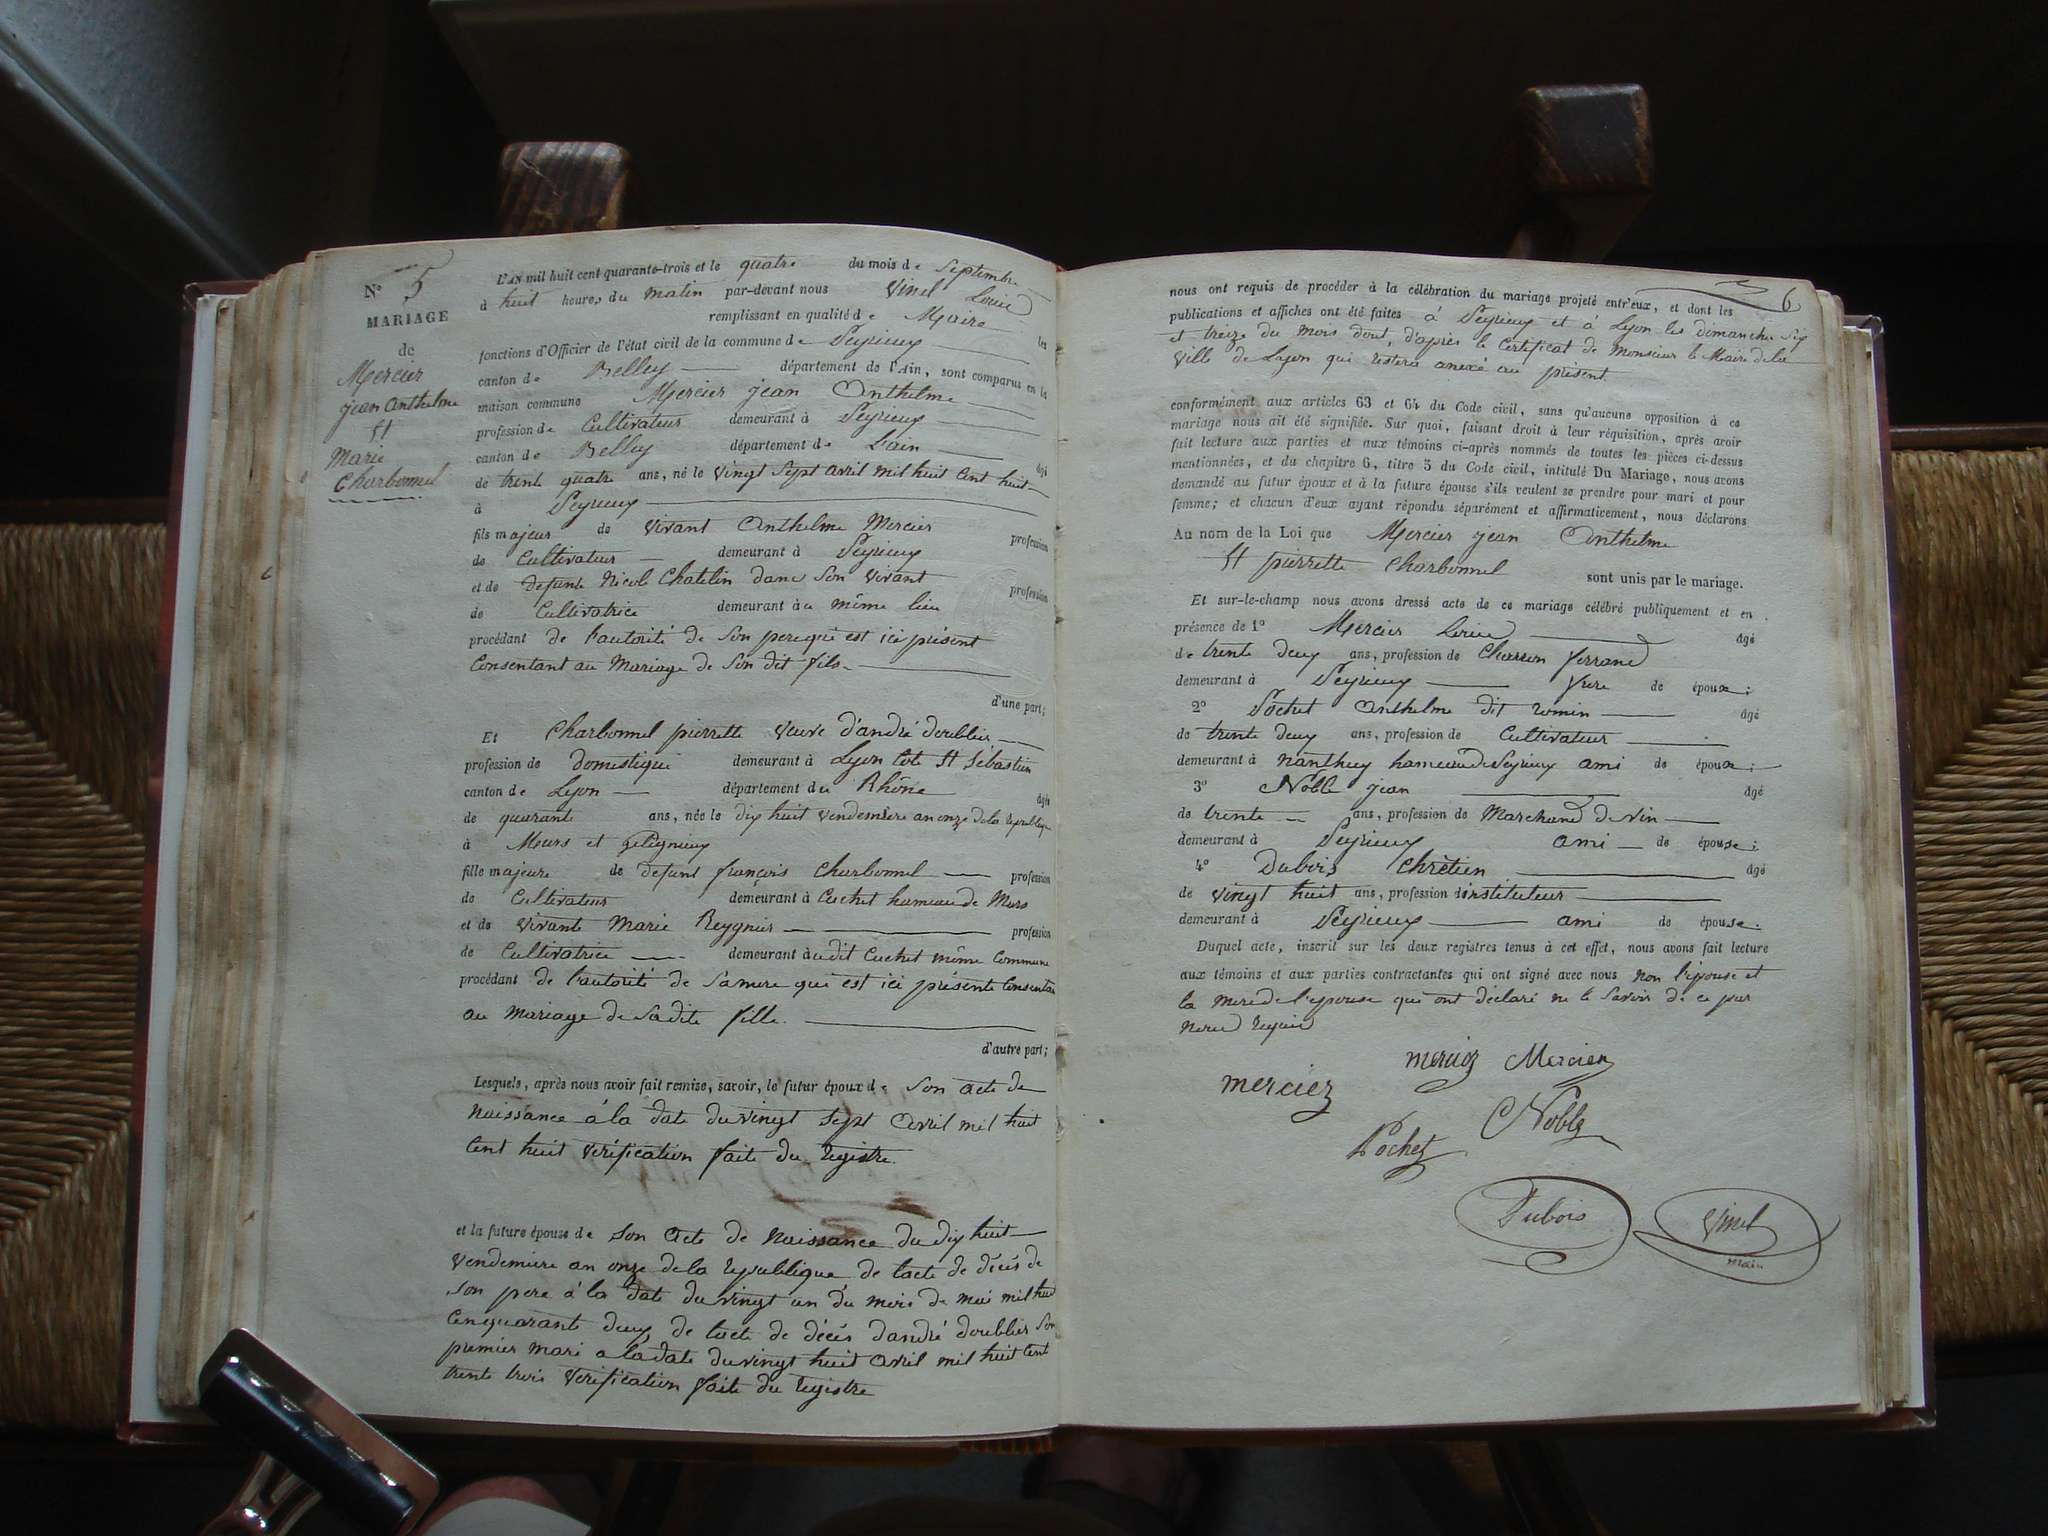 N° 5
MARIAGE
de
Mercier
jean anthelme
et
Marie
Charbonnel
L'AN mil huit cent quarante-trois et le quatre du mois de Septembre
à huit heures du matin par-devant nous Vinel Louis
remplissant en qualité de Maire les
fonctions d'Officier de l'état civil de la commune de Peyrieux
canton de Belley département de l'Ain, sont comparus en la
maison commune Mercier jean Anthelme
profession de Cultivateur demeurant à Peyrieux
canton de Belley département de L'ain âgé
de trente quatre ans, né le vingt Sept avril mil huit Cent huit
à Peyrieux
fils majeur de vivant Anthelme Mercier profession
de Cultivateur demeurant à Peyrieux
et de defunte Nicole Chatelin dans Son vivant profession
de Cultivatrice demeurant au même lieu
procédant de l'autorité de Son pere qui est ici présent
Consentant au Mariage de Son dit fils
d'une part;
Et Charbonnel pierrette veuve d'andré doublier
profession de domestique demeurant à Lyon Cote St Sébastien
canton de Lyon département du Rhône âgée
de quarante ans, née le dix huit vendemiere an onze de la republique
à Meurs et Gelignieux
fille majeure de defunt françois Charbonnel profession
de Cultivateur demeurant à Cuchet hameau de Murs
et de vivante Marie Reygnier profession
de Cultivatrice demeurant audit Cuchet même Commune
procédant de l'autorité de Samere qui est ici présente Consentan
au Mariage de Sadite fille.
d'autre part;
Lesquels, après nous avoir fait remise, savoir, le futur époux de Son acte de
Naissance à la date du vingt Sept Avril mil huit
Cent huit vérification faite du registre.
et la future épouse de Son Acte de Naissance du dix huit
vendemiere an onze de la republique de lacte de décés de
Son pere à la date du vingt un du mois de mai mil huit
Cenquarante deux, de lacte de décés dandré doublier Son
premier mari a la date du vingt huit avril mil huit Cent
trente trois vérification faite du registre
6
nous ont requis de procéder à la célébration du mariage projeté entr'eux, et dont les
publications et affiches ont été faites à Peyrieux et à Lyon les dimanches Six
et treize du Mois dout, d'après le Certificat de Monsieur le Maire de la
Ville de Lyon qui restera anexé au présent.
conformément aux articles 63 et 64 du Code civil, sans qu'aucune opposition à ce
mariage nous ait été signifiée. Sur quoi, faisant droit à leur réquisition, après avoir
fait lecture aux parties et aux témoins ci-après nommés de toutes les pièces ci-dessus
mentionnées, et du chapitre 6, titre 5 du Code civil, intitulé Du Mariage, nous avons
demandé au futur époux et à la future épouse s'ils veulent se prendre pour mari et pour
femme; et chacun d'eux ayant répondu séparément et affirmativement, nous déclarons
Au nom de la Loi que Mercier jean Anthelme
et pierrette Charbonnel sont unis par le mariage.
Et sur-le-champ nous avons dressé acte de ce mariage célébré publiquement et en
présence de 1° Mercier Louis âgé
de trente deux ans, profession de Charron ferrand
demeurant à Peyrieux frere de époux;
2° Pochet Anthelme dit romin âgé
de trente deux ans, profession de Cultivateur
demeurant à Nanthuy hameau de Peyrieux ami de époux;
3° Noble jean âgé
de trente ans, profession de Marchand de vin
demeurant à Peyrieux ami de épouse;
4° Dubois Chrètien âgé
de vingt huit ans, profession d'instituteur
demeurant à Peyrieux ami de épouse.
Duquel acte, inscrit sur les deux registres tenus à cet effet, nous avons fait lecture
aux témoins et aux parties contractantes qui ont signé avec nous non l'épouse et
la mere de l'epouse qui ont déclaré ne le Savoir de ce par
Nous requis
mercier Mercier
mercier
Noble
Pochet
Dubois Vinel
maire